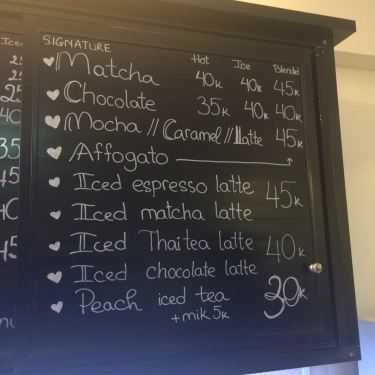 Iced
25
25
25
40
35
45
40
45
SIGNATURE
Hot Ice Blended
Matcha 40k 40k 45k
Chocolate 35k 40k 40k
Mocha // Caramel // Latte 45k
Affogato
Iced espresso latte 45k
Iced matcha latte
Iced Thai tea latte 40k
Iced chocolate latte
Peach iced tea 30k
+mik 5k